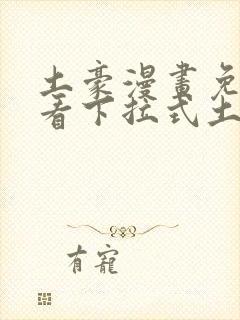 土豪漫畫免
看下拉式土
有寵